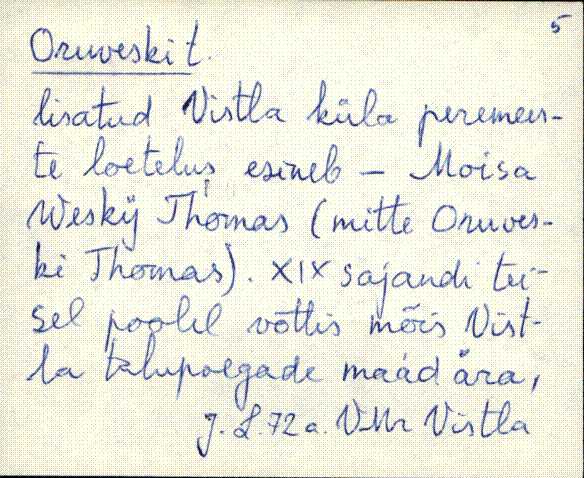 5
Oruveski t.
lisatud Vistla küla peremees-
te loetelus esineb – Moisa
Weskÿ Thomas (mitte Oruves-
ki Thomas). XIX sajandi tei-
sel poolel võttis mõis Vist-
la talupoegade maad ära,
J. L. 72 a. VMr Vistla